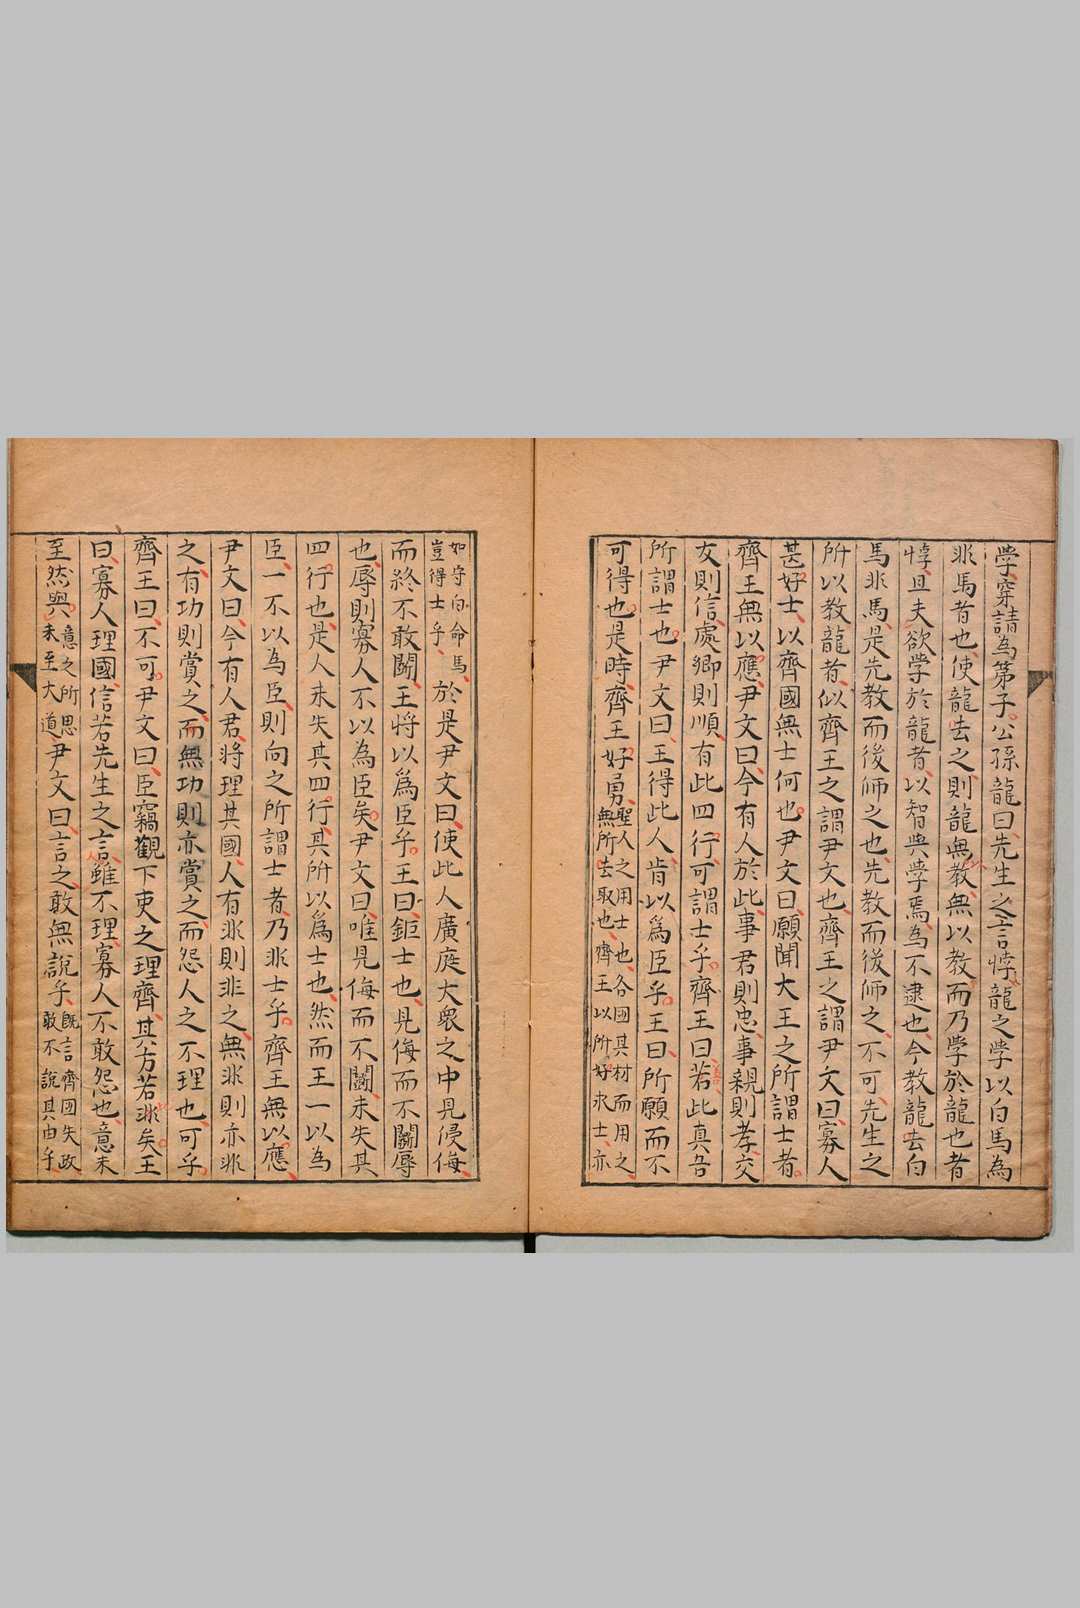 學穿請為第子公孫龍曰先生之言悖龍之學以白馬為
非馬者也使龍去之則龍無教無以教而乃学於龍也者
悖且夫欲学於龍者以智與學焉為不逮也今教龍去白
馬非馬是先教而後師之也先教而後師之不可先生之
所以教龍者似齊王之謂尹文也齊王之謂尹文曰寡人
甚好士以齊國無士何也尹文曰願聞大王之所謂士者
齊王無以應尹文曰今有人於此事君則忠事親則孝交
友則信處鄉則順有此四行可謂士乎齊王曰若此真吾
所謂士也尹文曰王得此人肯以為臣乎王曰所願而不
可得也是時齊王好勇聖人之用士也各因其材而用之
無所去取也齊王以所好求士亦
如守白命馬
豈得士乎於是尹文曰使此人廣庭大衆之中見侵侮
而終不敢鬭王将以爲臣乎王曰鉅士也見侮而不鬭辱
也辱則寡人不以為臣矣尹文曰唯見侮而不鬭未失其
四行也是人未失其四行其所以爲士也然而王一以為
臣一不以為臣則向之所謂士者乃非士乎齊王無以應
尹文曰今有人君将理其國人有非則非之無非則亦非
之有功則賞之而無功則亦賞之而怨人之不理也可乎
齊王曰不可尹文曰臣竊觀下吏之理齊其方若非矣王
曰寡人理國信若先生之言人雖不理寡人不敢怨也意未
至然與意之所思
未至大道尹文曰言之敢無說乎既言齊國失政
敢不說其由乎